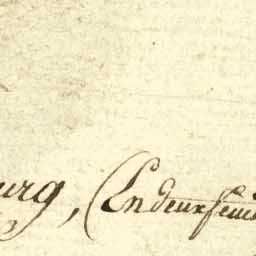 urg, (en deux feuil